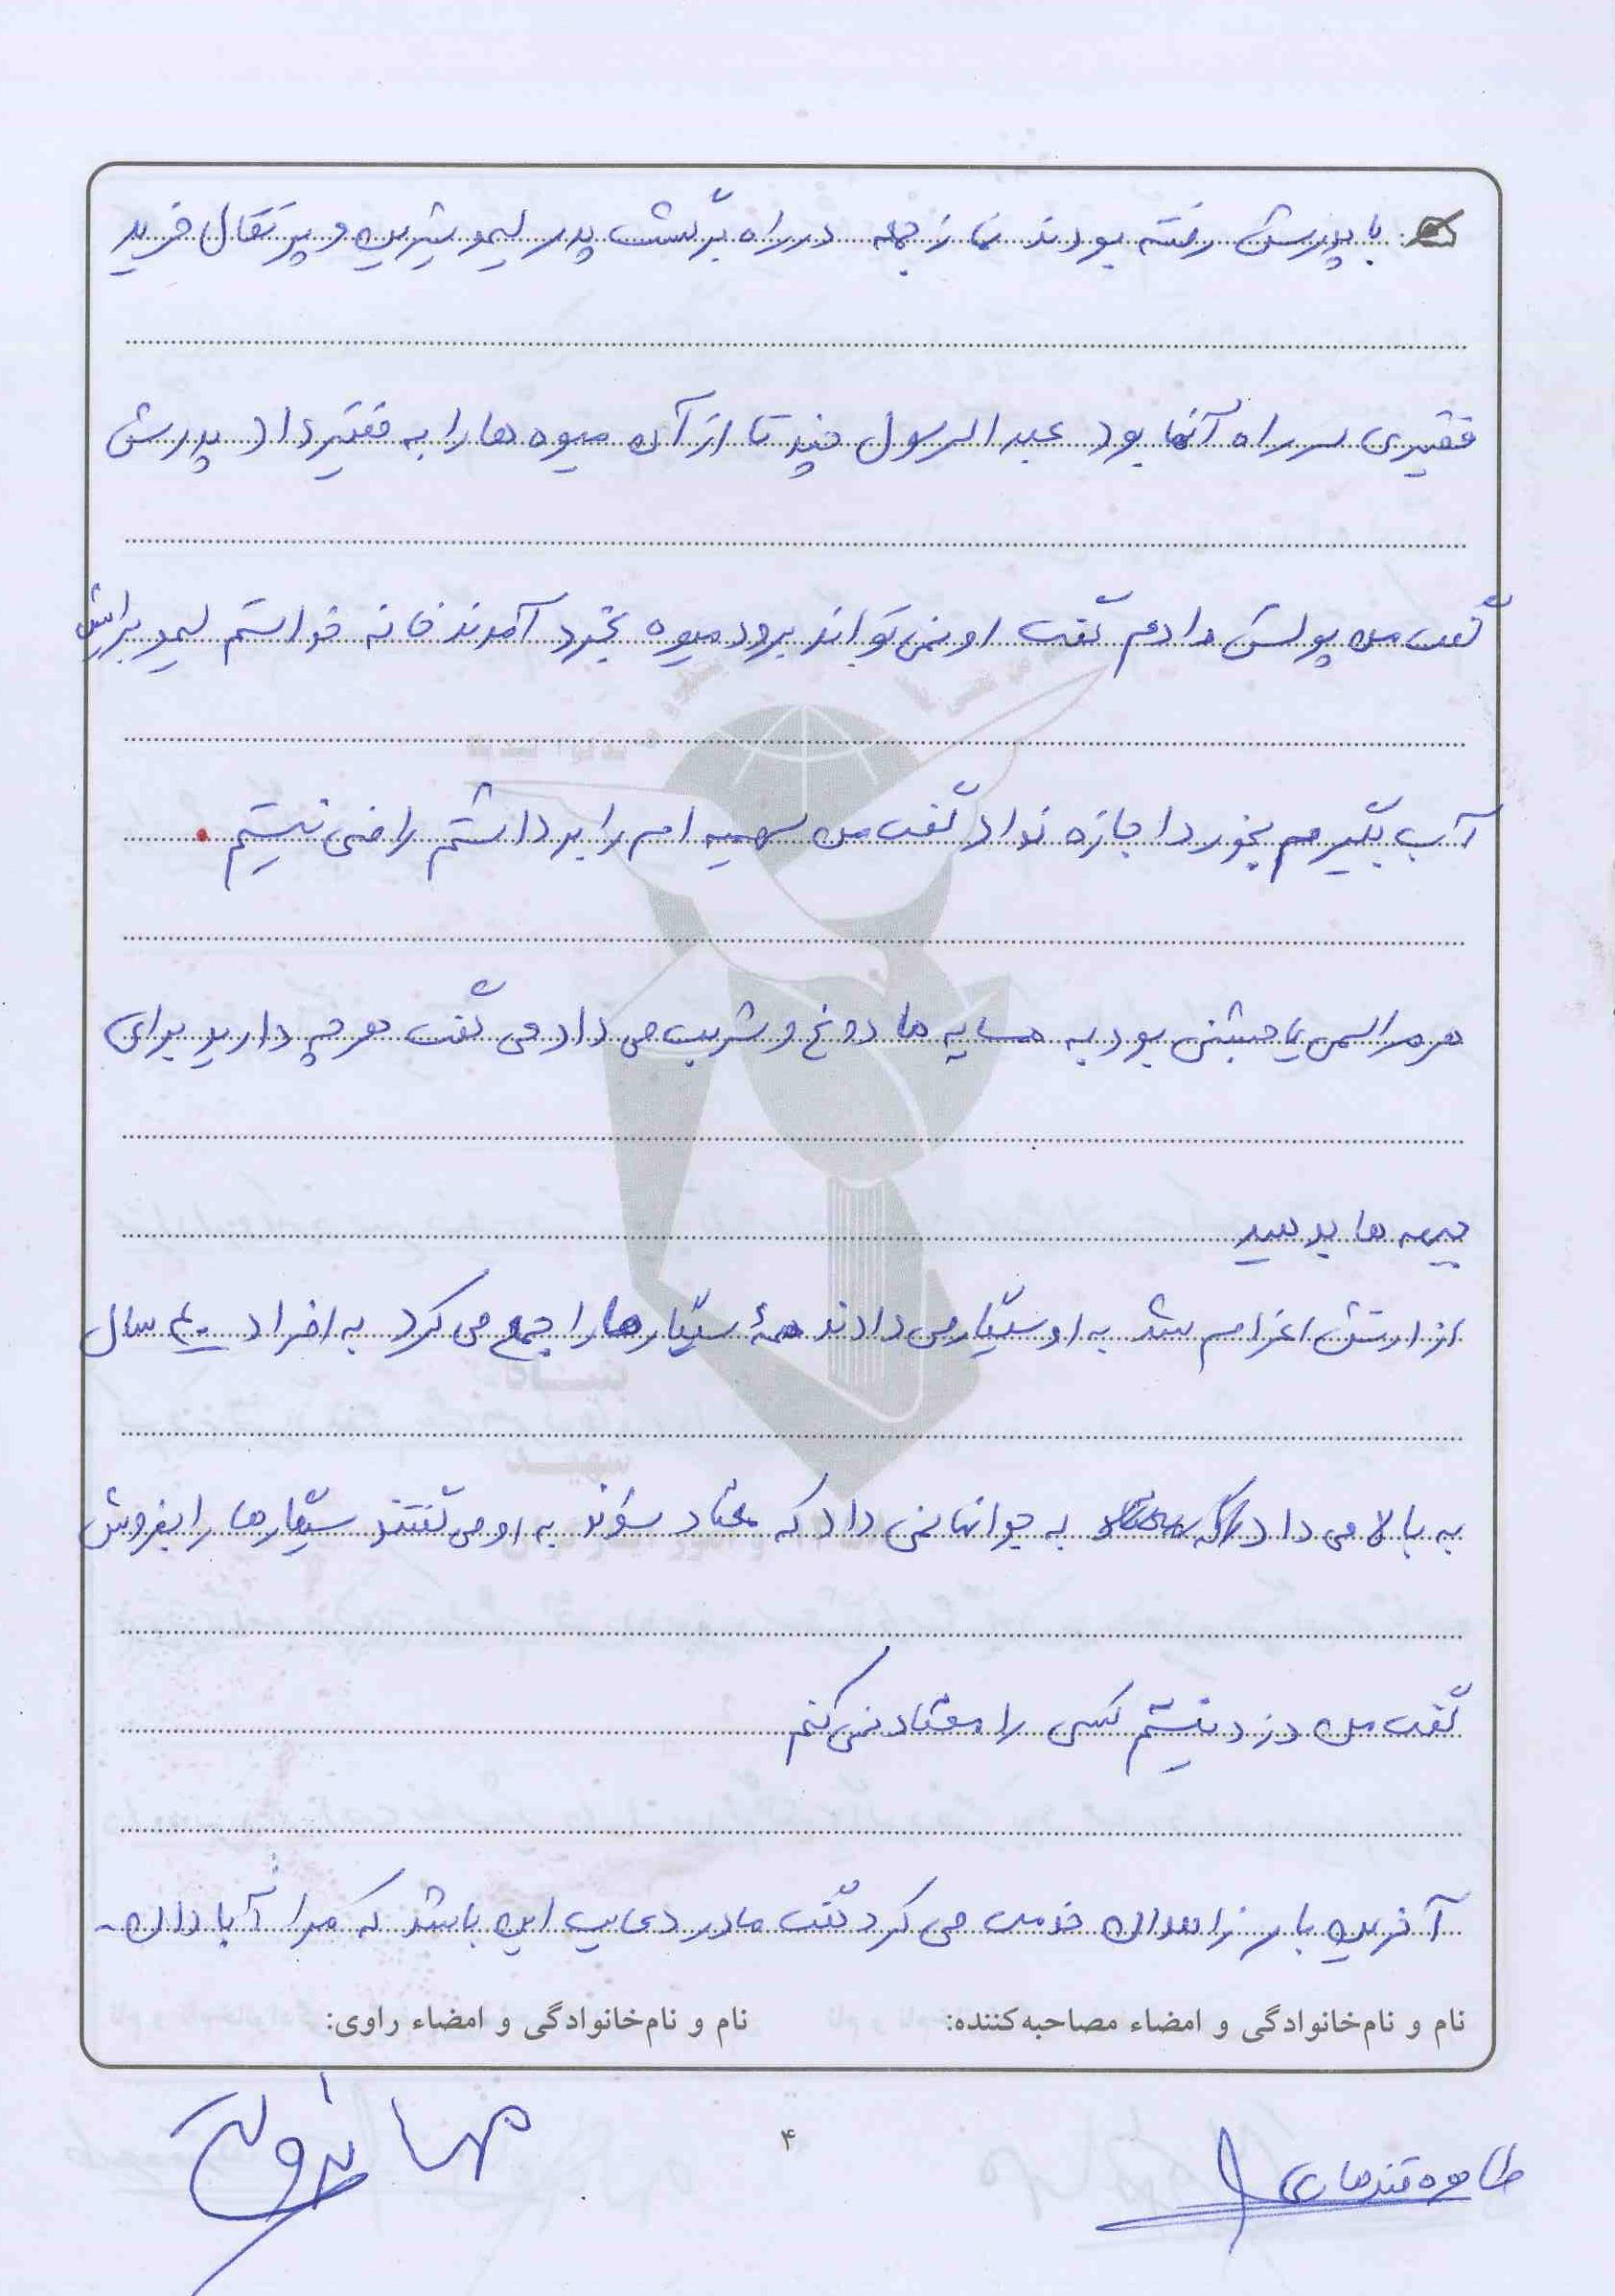 با پدرش رفته بودند نماز جمعه در راه برگشت پدر لیمو شیرین و پرتقال خرید
فقیری سر راه آنها بود عبدالرسول چند تا از آن میوه ها را به فقیر داد پدرش
گفت من پولش دادم گفت او نمی تواند برود میوه بخرد آمدند خانه خواستم لیمو برایش
آب بگیرم بخورد اجازه نداد گفت من سهمیه ام را برداشتم راضی نیستم.
هر مراسمی یا جشنی بود به همسایه ها دوغ و شربت می داد می گفت هر چه دارید برای
جبهه ها بدهید
از ارتش اعزام شد به او سیگار می دادند همۀ سیگارها را جمع می کرد به افراد ۴۰ سال
به بالا می داد به جوانها نمی داد که معتاد شوند به او می گفتند سیگارها را بفروش
گفت من دزد نیستم کسی را معتاد نمی کنم
آخرین بار زاهدان خدمت می کرد گفت مادر دعایت این باشد که مرا آبادان-
نام و نام‌خانوادگی و امضاء مصاحبه‌کننده: نام و نام‌خانوادگی و امضاء راوی:
طاهره قندهاری
۴
بنیاد
شهید